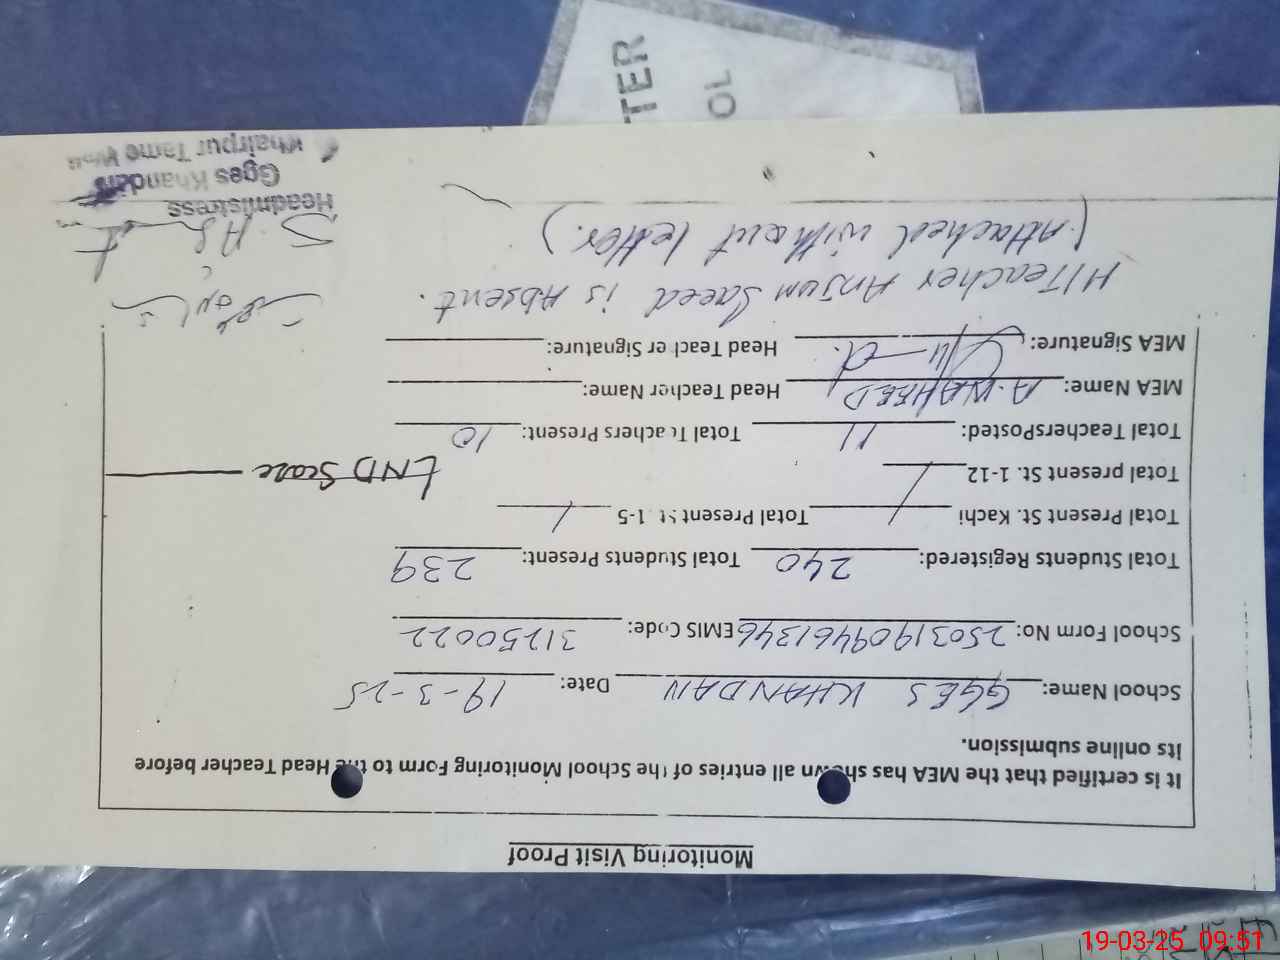 Monitoring Visit Proof
It is certified that the MEA has shown all entries of the School Monitoring Form to the Head Teacher before
its online submission.
School Name: GGES KHANDAN Date: 19-3-25
School Form No: 25031909461346 EMIS Code: 31250022
Total Students Registered: 240 Total Students Present: 239
Total Present St. Kachi / Total Present St. 1-5 /
Total present St. 1-12 / LND Score
Total TeachersPosted: 11 Total Teachers Present: 10
MEA Name: A.WAHEED Head Teacher Name:
MEA Signature: Head Teacher Signature:
H/Teacher Anjum Saeed is Absent.
(Attached without letter.)
Headmistress
Gges Khandan
Khairpur Tame
TER
OL
19-03-25 09:51